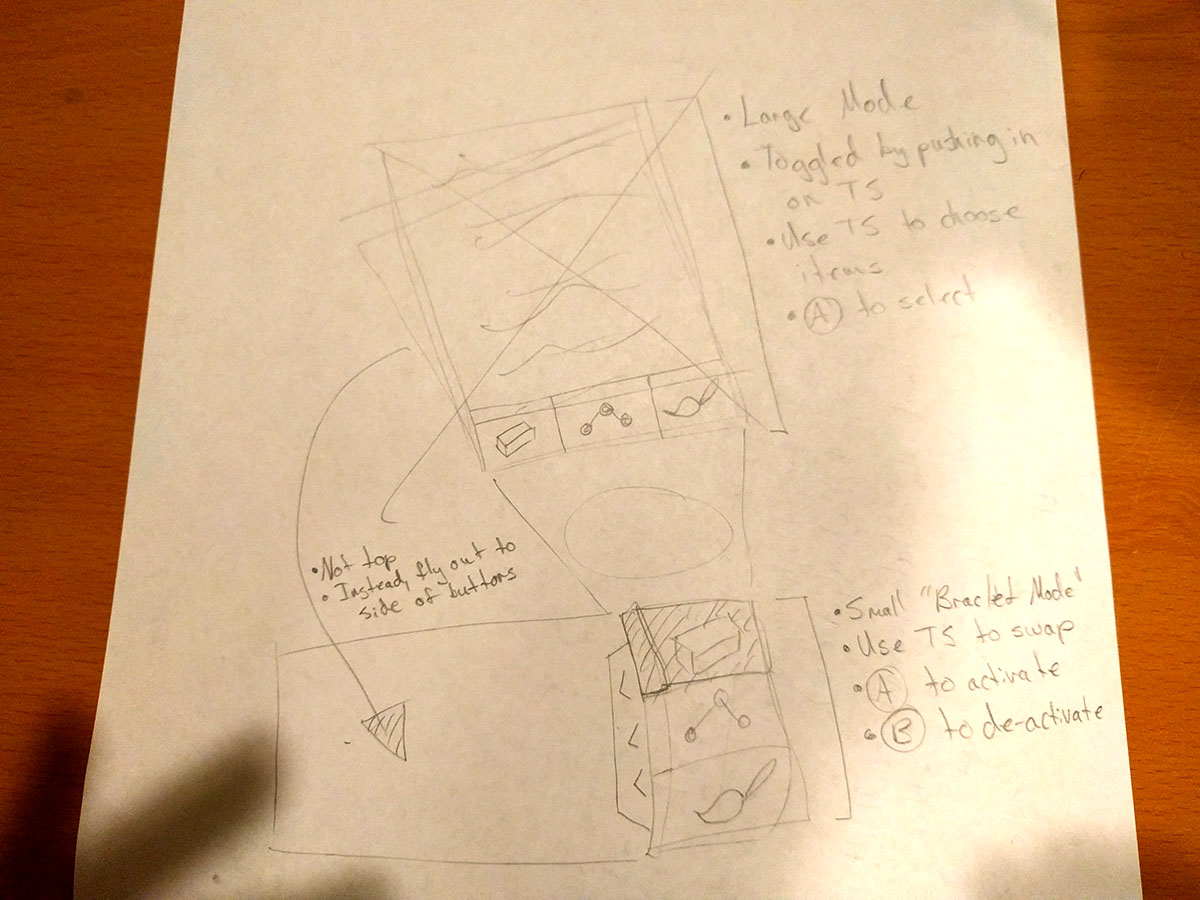 • Large Mode
• Toggled by pushing in
on TS
• Use TS to choose
items
• A to select
• Not top
• Instead, fly out to
side of buttons
• Small "Bracelet Mode"
• Use TS to swap
• A to activate
• B to de-activate